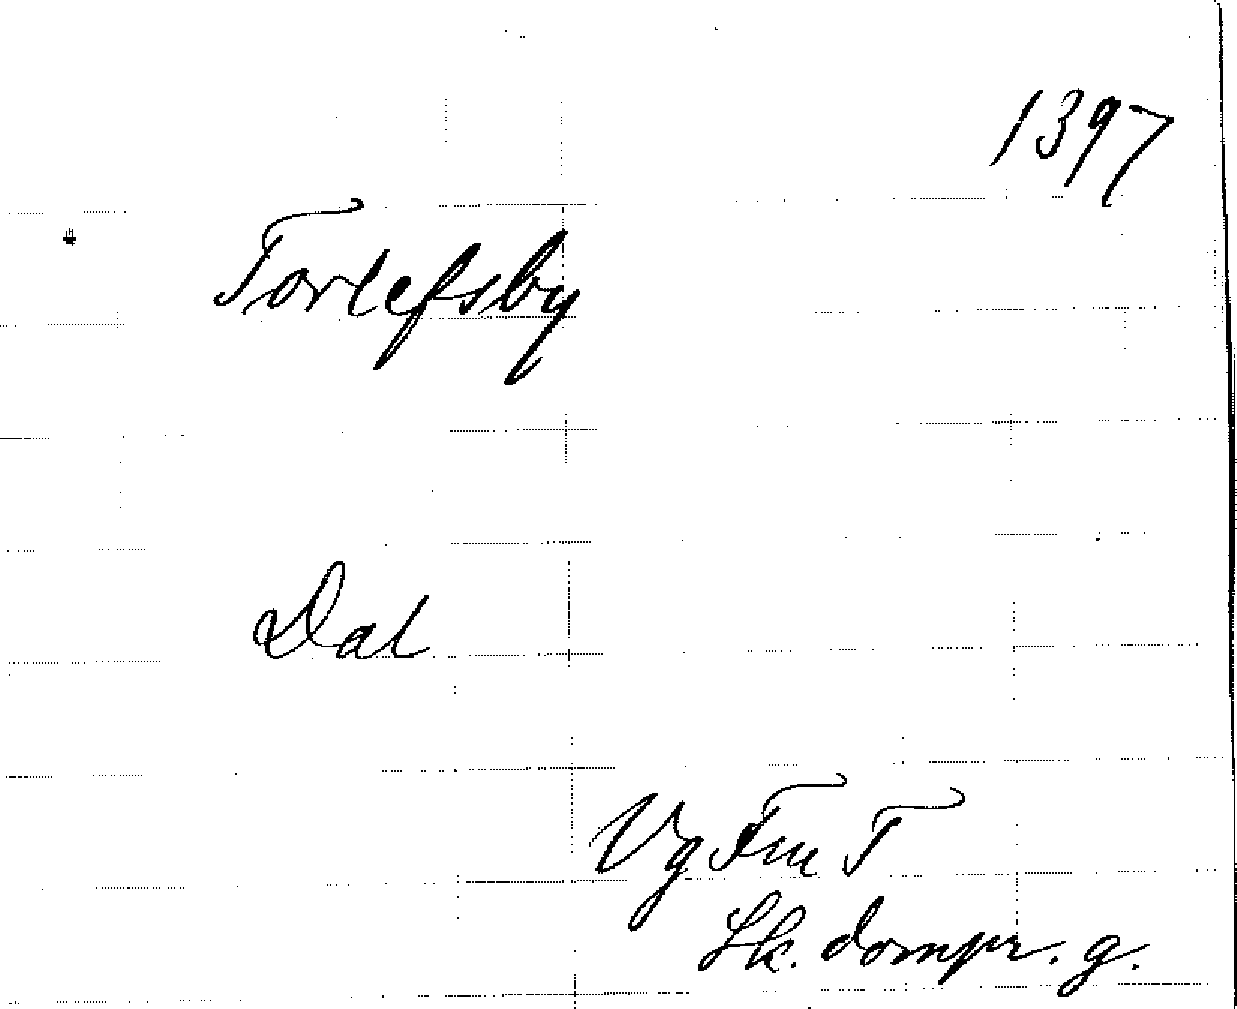 1397
Torlefsby
Dal
Vg Fru T
Sk. dompr. g.